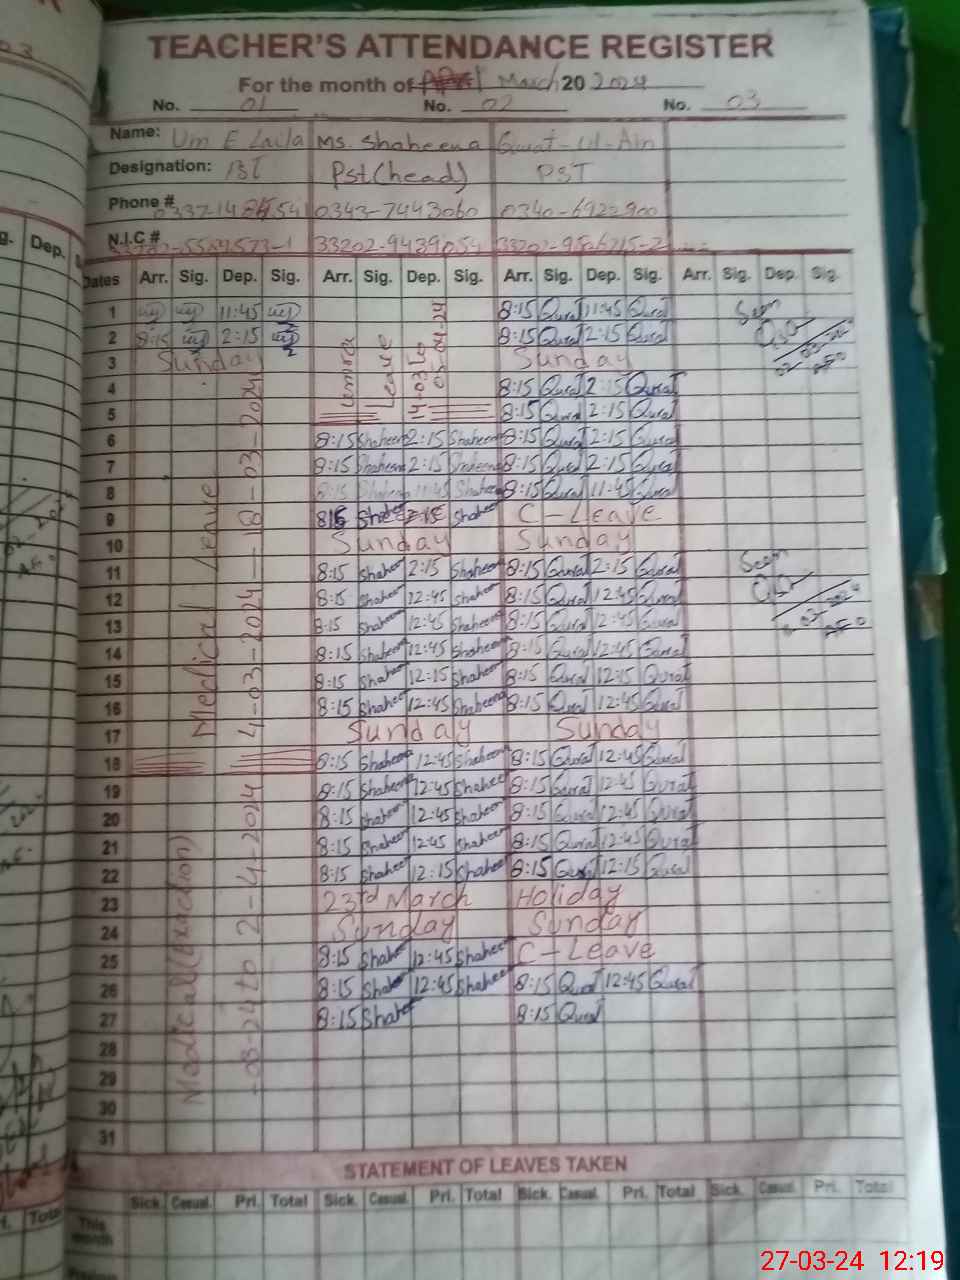 TEACHER'S ATTENDANCE REGISTER
For the month of March 20 2024
No. 01 No. 02 No. 03
Name: Um E Laila Ms. Shaheena Qurat-ul-Ain
Designation: PST(head) PST
Phone # 0343-7443060 0340-6922900
N.I.C # 33202-9439054
Dates Arr. Sig. Dep. Sig. Arr. Sig. Dep. Sig. Arr. Sig. Dep. Sig. Arr. Sig. Dep. Sig.
1 11:45 8:15 Qurat 11:45 Qurat Seen
2 8:15 2:15 8:15 Qurat 2:15 Qurat
3 Sunday Sunday
4 8:15 Qurat 2:15 Qurat
5 8:15 Qurat 2:15 Qurat
6 8:15 Shaheena 2:15 Shaheena 8:15 Qurat 2:15 Qurat
7 8:15 Shaheena 2:15 Shaheena 8:15 Qurat 2:15 Qurat
8 8:15 Shaheena 11:45 Shaheena 8:15 Qurat 11:45 Qurat
9 815 Shahee 2:15 Shahee C-Leave
10 Sunday Sunday
11 8:15 Shaheen 2:15 Shaheen 8:15 Qurat 2:15 Qurat Seen
12 8:15 Shaheen 12:45 Shaheen 8:15 Qurat 12:45 Qurat
13 8:15 Shaheen 12:45 Shaheen 8:15 Qurat 12:45 Qurat
14 8:15 Shaheen 12:45 Shaheen 8:15 Qurat 12:45 Qurat
15 8:15 Shaheen 12:15 Shaheen 8:15 Qurat 12:15 Qurat
16 8:15 Shaheen 12:45 Shaheena 8:15 Qurat 12:45 Qurat
17 Sunday Sunday
18 8:15 Shaheena 12:45 Shaheena 8:15 Qurat 12:45 Qurat
19 8:15 Shaheena 12:45 Shaheen 8:15 Qurat 12:45 Qurat
20 8:15 Shaheen 12:45 Shaheen 8:15 Qurat 12:45 Qurat
21 8:15 Shaheen 12:45 Shaheen 8:15 Qurat 12:45 Qurat
22 8:15 Shaheen 12:15 Shaheen 8:15 Qurat 12:15 Qurat
23 23rd March Holiday
24 Sunday Sunday
25 8:15 Shahee 12:45 Shaheen C-Leave
26 8:15 Shahee 12:45 Shaheen 8:15 Qurat 12:45 Qurat
27 8:15 Shahee 8:15 Qurat
28
29
30
31
Medical Leave
4-03-2024 — 18-03-2024
Medicall(Exaction)
-03-24 to 2-4-2024
Leave
STATEMENT OF LEAVES TAKEN
Sick. Casual. Pri. Total Sick. Casual. Pri. Total Sick. Casual. Pri. Total Sick. Casual. Pri. Total
This month
27-03-24 12:19